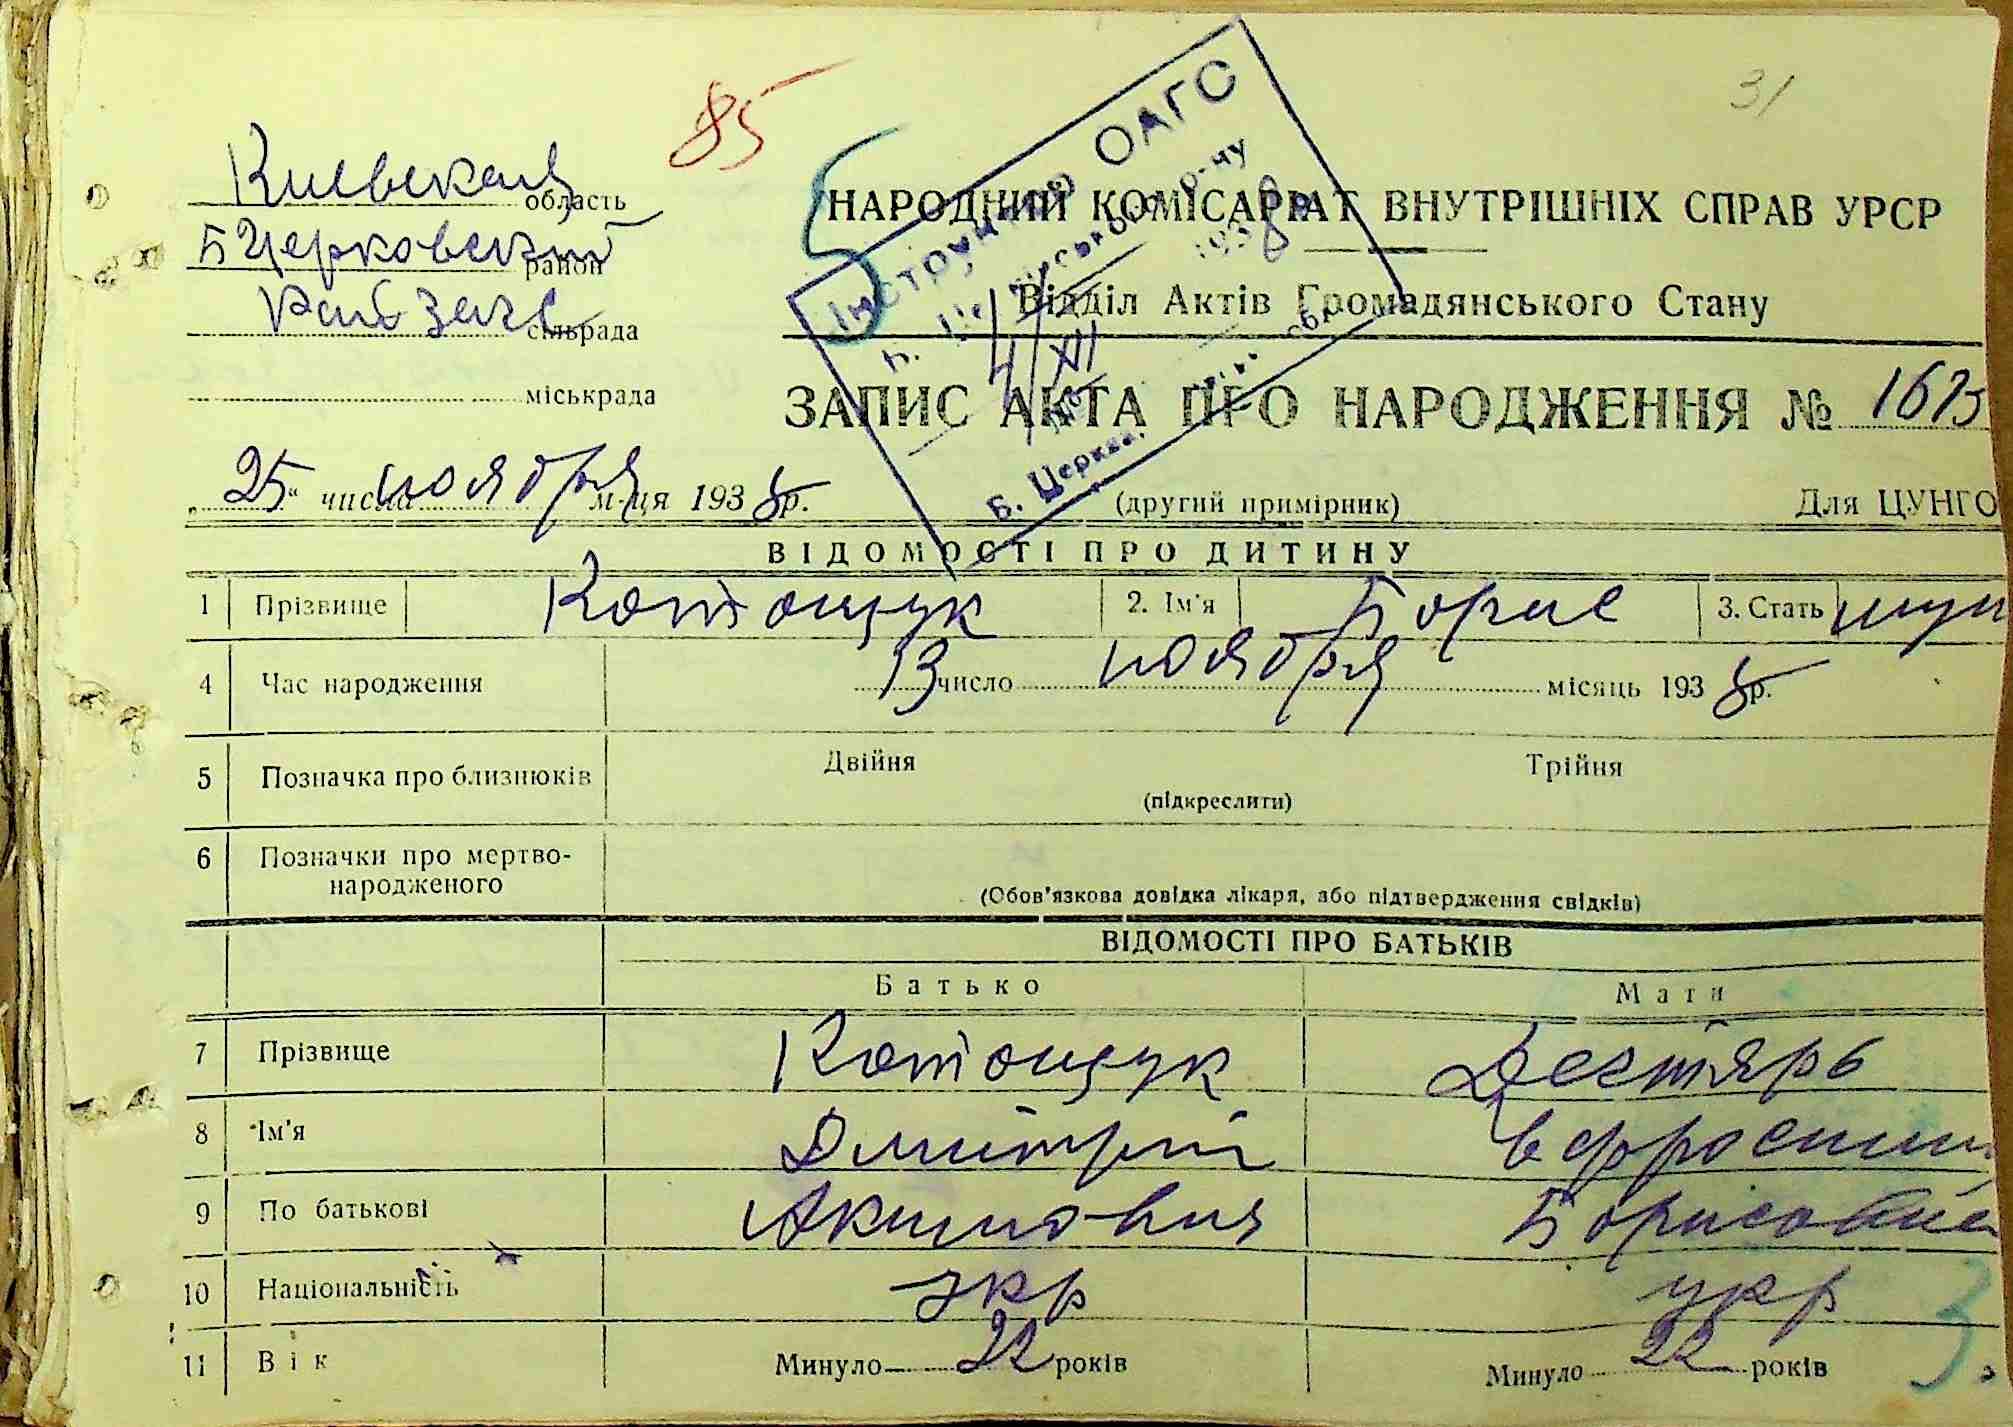 31
85
Киевская область
БЦерковский район
Райзагс сільрада
міськрада
НАРОДНИЙ КОМІСАРІАТ ВНУТРІШНІХ СПРАВ УРСР
Відділ Актів Громадянського Стану
ЗАПИС АКТА ПРО НАРОДЖЕННЯ № 1673
Інструктор ОАГС
міського р-ну
4/XII 1938
Б. Церква, обл.
"25" числа ноября м-ця 1938 р.
(другий примірник)
Для ЦУНГО
ВІДОМОСТІ ПРО ДИТИНУ
1 Прізвище Котощук 2. Ім'я Борис 3. Стать муж
4 Час народження 13 число ноября місяць 1938 р.
5 Позначка про близнюків Двійня Трійня
(підкреслити)
6 Позначки про мертво-
народженого
(Обов'язкова довідка лікаря, або підтвердження свідків)
ВІДОМОСТІ ПРО БАТЬКІВ
Батько Мати
7 Прізвище Котощук Дестярь
8 Ім'я Дмитрий Ефросин
9 По батькові Акимович Борисовна
10 Національність укр укр
11 Вік Минуло 22 років Минуло 22 років